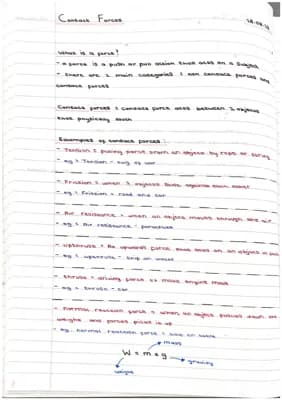 Contact Forces
What is a force?
- a force is a push or pull action that acts on a subject
- there are 2 main categories : non contact forces and
contact forces
Contact forces : contact force acts between 2 objects
that physically touch
Examples of contact forces :
- Tension : pulling force from an object by rope or string
- eg : Tension - tug of war
- Friction : when 2 objects slide against each other
- eg : Friction - road and car
- Air resistance : when an object moves through the air
- eg : Air resistance - parachute
- upthrust : An upwards force that acts on an object in
- eg : upthrust - ship on water
- thrust : driving force to make engine move
- eg : thrust - car
- normal reaction force : when an object pushes down
weight and forces
- eg. normal reaction force :
mass
W = m x g
gravity
weight